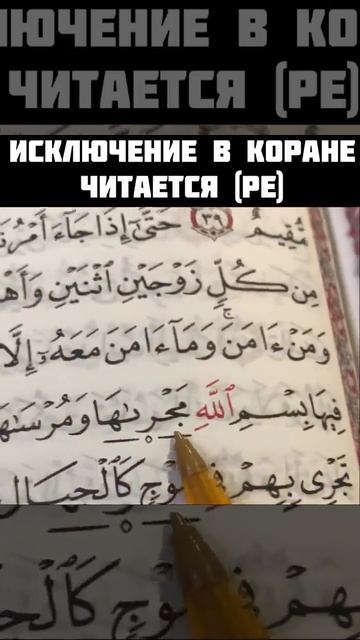 ЛЮЧЕНИЕ В КО
ЧИТАЕТСЯ (РЕ)
ИСКЛЮЧЕНИЕ В КОРАНЕ
ЧИТАЕТСЯ (РЕ)
مُّقِيمٌ ٣٩ حَتَّىٰٓ إِذَا جَآءَ أَمْرُنَ
مِن كُلٍّ زَوْجَيْنِ ٱثْنَيْنِ وَأَهْ
وَمَنْ ءَامَنَ ۚ وَمَآ ءَامَنَ مَعَهُۥٓ إِلَّا
فِيهَا بِسْمِ ٱللَّهِ مَجْر۪ىٰهَا وَمُرْسَىٰهَا
تَجْرِى بِهِمْ فِى مَوْجٍ كَٱلْجِبَالِ